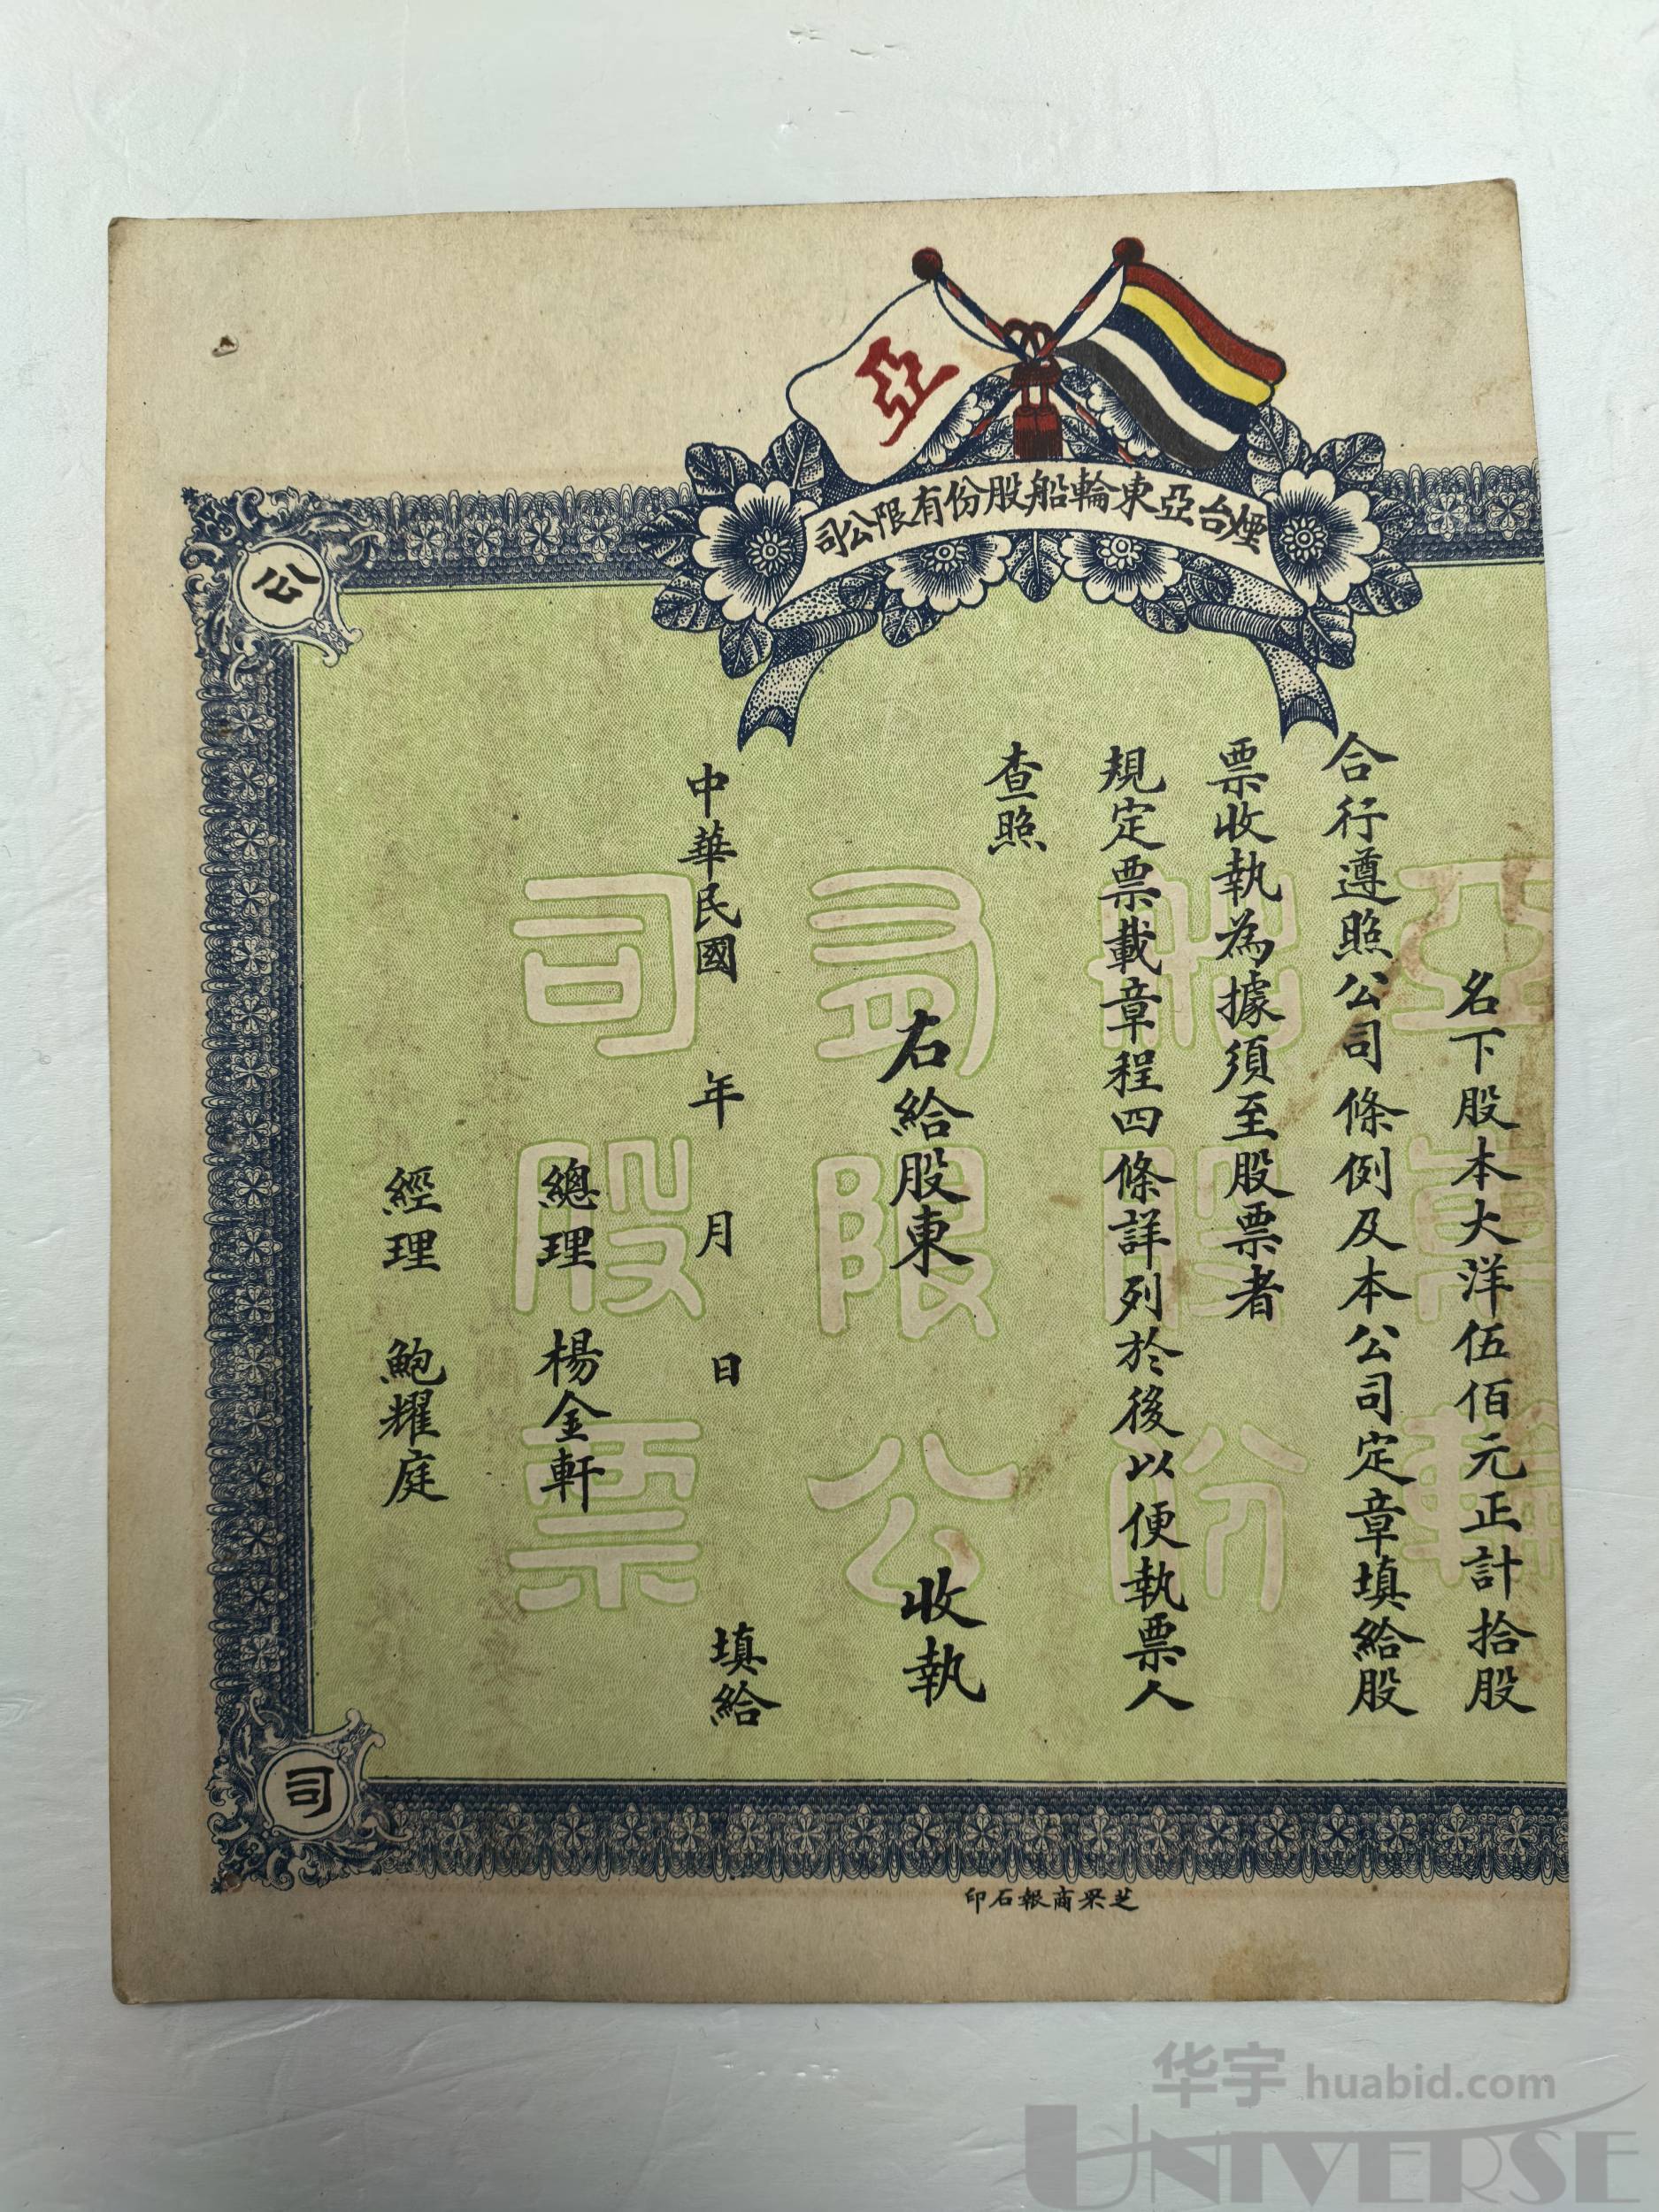 亞
煙台亞東輪船股份有限公司
公
名下股本大洋伍佰元正計拾股
合行遵照公司條例及本公司定章填給股
票收執為據須至股票者
規定票載章程四條詳列於後以便執票人
查照
右給股東 收執
中華民國 年 月 日 填給
總理 楊金軒
經理 鮑耀庭
司
亞 輪
船股份
有限公
司股票
芝罘商報石印
华宇 huabid.com
UNIVERSE